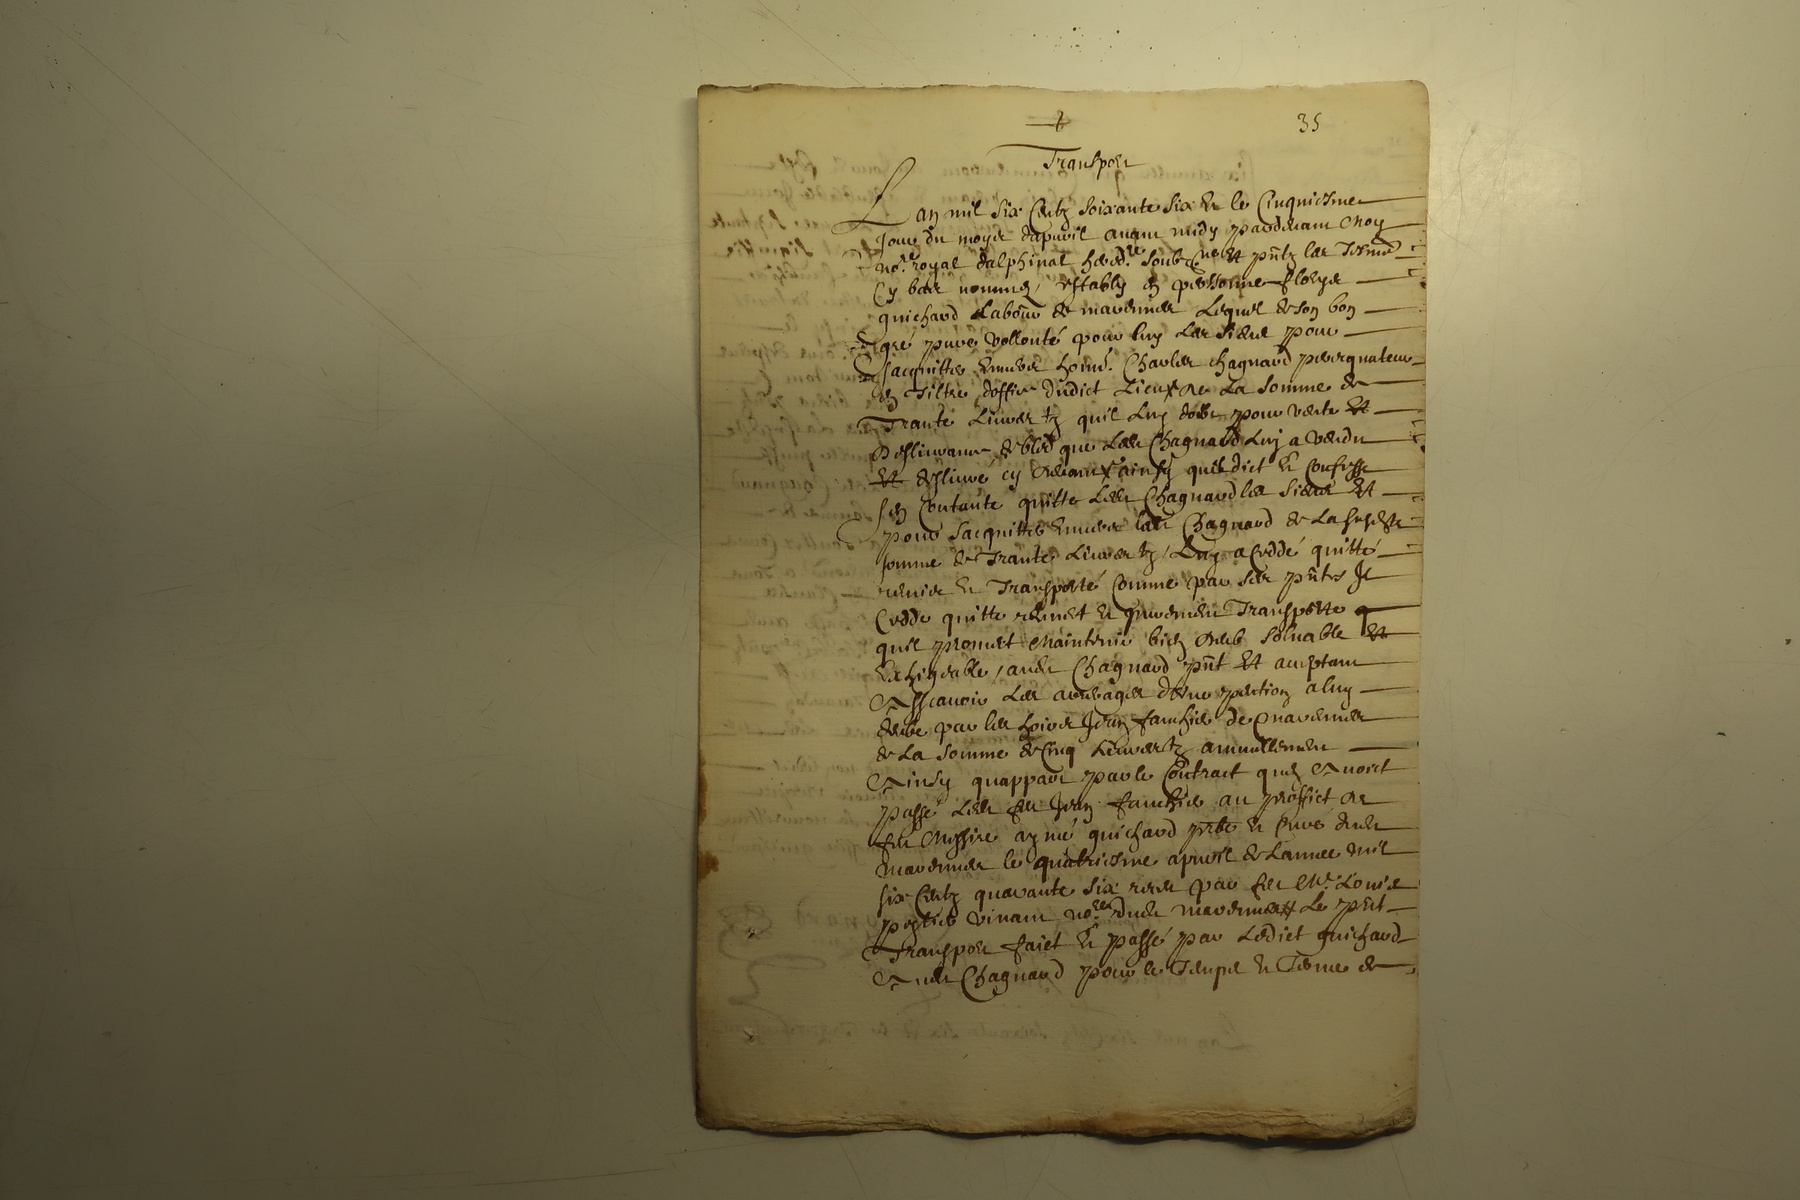 35
Transport
L an mil six centz soixante six et le cinquiesme
Jour du moys dapvril avant midy pardevant moy
no.re royal dalphinal hered.re soubz.ne et pntz les tesmo
Cy bas nommes, estably en personne
guichard Labour de marennes Lequel de son bon
gré pure vollonté pour luy Les siens pour
Sacquitter envers hon.e Charles Chagnard
en tiltre doffice dudict Lieu de La somme de
Trante Livres tz quil Luy doibt pour vente et
deslivrance de bled que Led Chagnard Luy a vendu
et deslivré cy devant ainsy quil dict et confesse
sen contante quitte Led Chagnard les siens et
pour Sacquitter envers led Chagnard de La susdicte
somme de Trante Livres tz, Luy a ceddé quitté
remis et Transporté Comme par ses pntes Il
Cedde quitte remet et purement Transporte
quil promet maintenir bien deub solvable et
Exhigeable, aud Chagnard pnt et acceptant
Asscavoir Les arreages dune pention a luy
deube par les hoirs Jean de marennes
de La somme de Cinq Livres tz annuellement
Ainsy quappart par le Contract quen Avoict
passé Led feu Jean au proffict de
feu Messire aymé guichard pbre et Curé dud
marennes le quatriesme apvril de Lannee mil
six centz quarante six receu par feu Me Louis
vinant no.re dud marennes Le pnt
Transport faict et passé par Ledict guichard
Aud Chagnard pour le Temps et Terme de